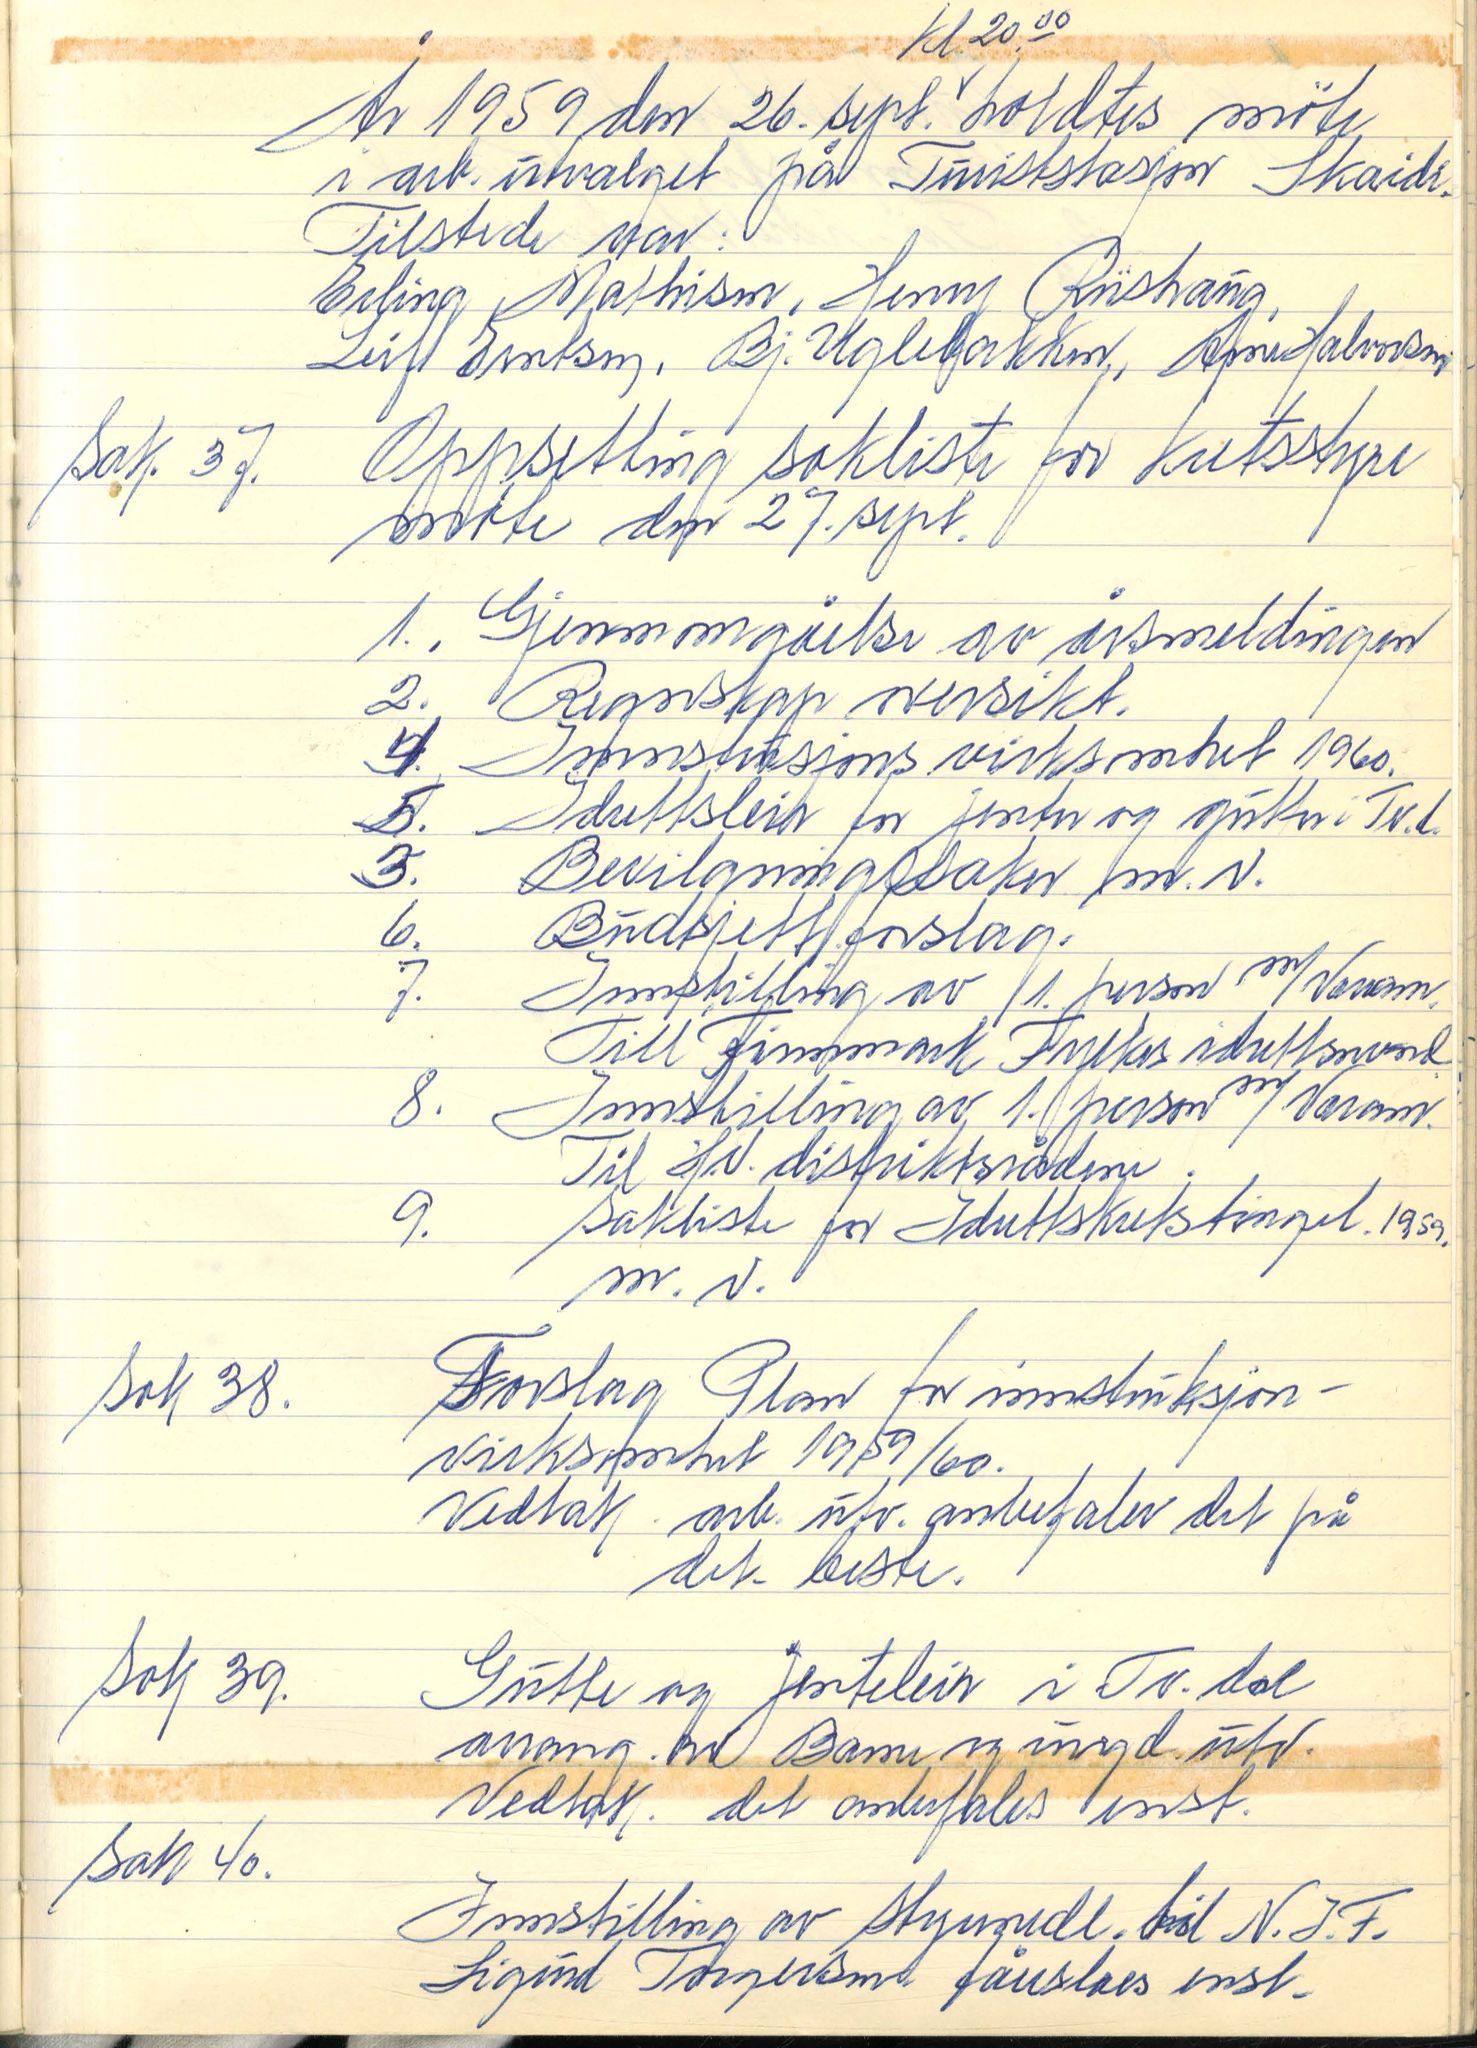 kl. 20.00
År 1959 den 26. sept. holdtes möte
i arb. utvalget på Turiststasjon Skaidi.
Tilstede var:
Erling Mathisen, Henry Rushaug,
Leif Evertsen, Bj. Uglebakken, Arne Halvorsen
Sak. 37. Oppsetting sakliste for kretsstyre
möte den 27. sept.
1. Gjennomgåelse av årsmeldingen
2. Regnskap oversikt.
4. Innstruksjons virksomhet 1960.
5. Idrettsleir for jenter og gutter i Tv.d.
3. Bevilgningssaker m.v.
6. Budsjett forslag.
7. Innstilling av 1. person m/Varam.
Till Finnmark Fylkes idrettsnevnd
8. Innstilling av 1. person m/Varam.
Til H.V. distriktsrådene.
9. Sakliste for Idrettskretstinget. 1959.
m. v.
Sak 38. Forslag Plan for innstruksjon-
virksomhet 1959/60.
Vedtak. arb. utv. anbefaler det på
det beste.
Sak 39. Gutte og jenteleir i Tv. dal
arrang. av Barne og ungd. utv.
Vedtak. det anbefales enst.
Sak 40.
Innstilling av styremedl. til N.I.F.
Sigurd Torgersen fåreslåes enst.